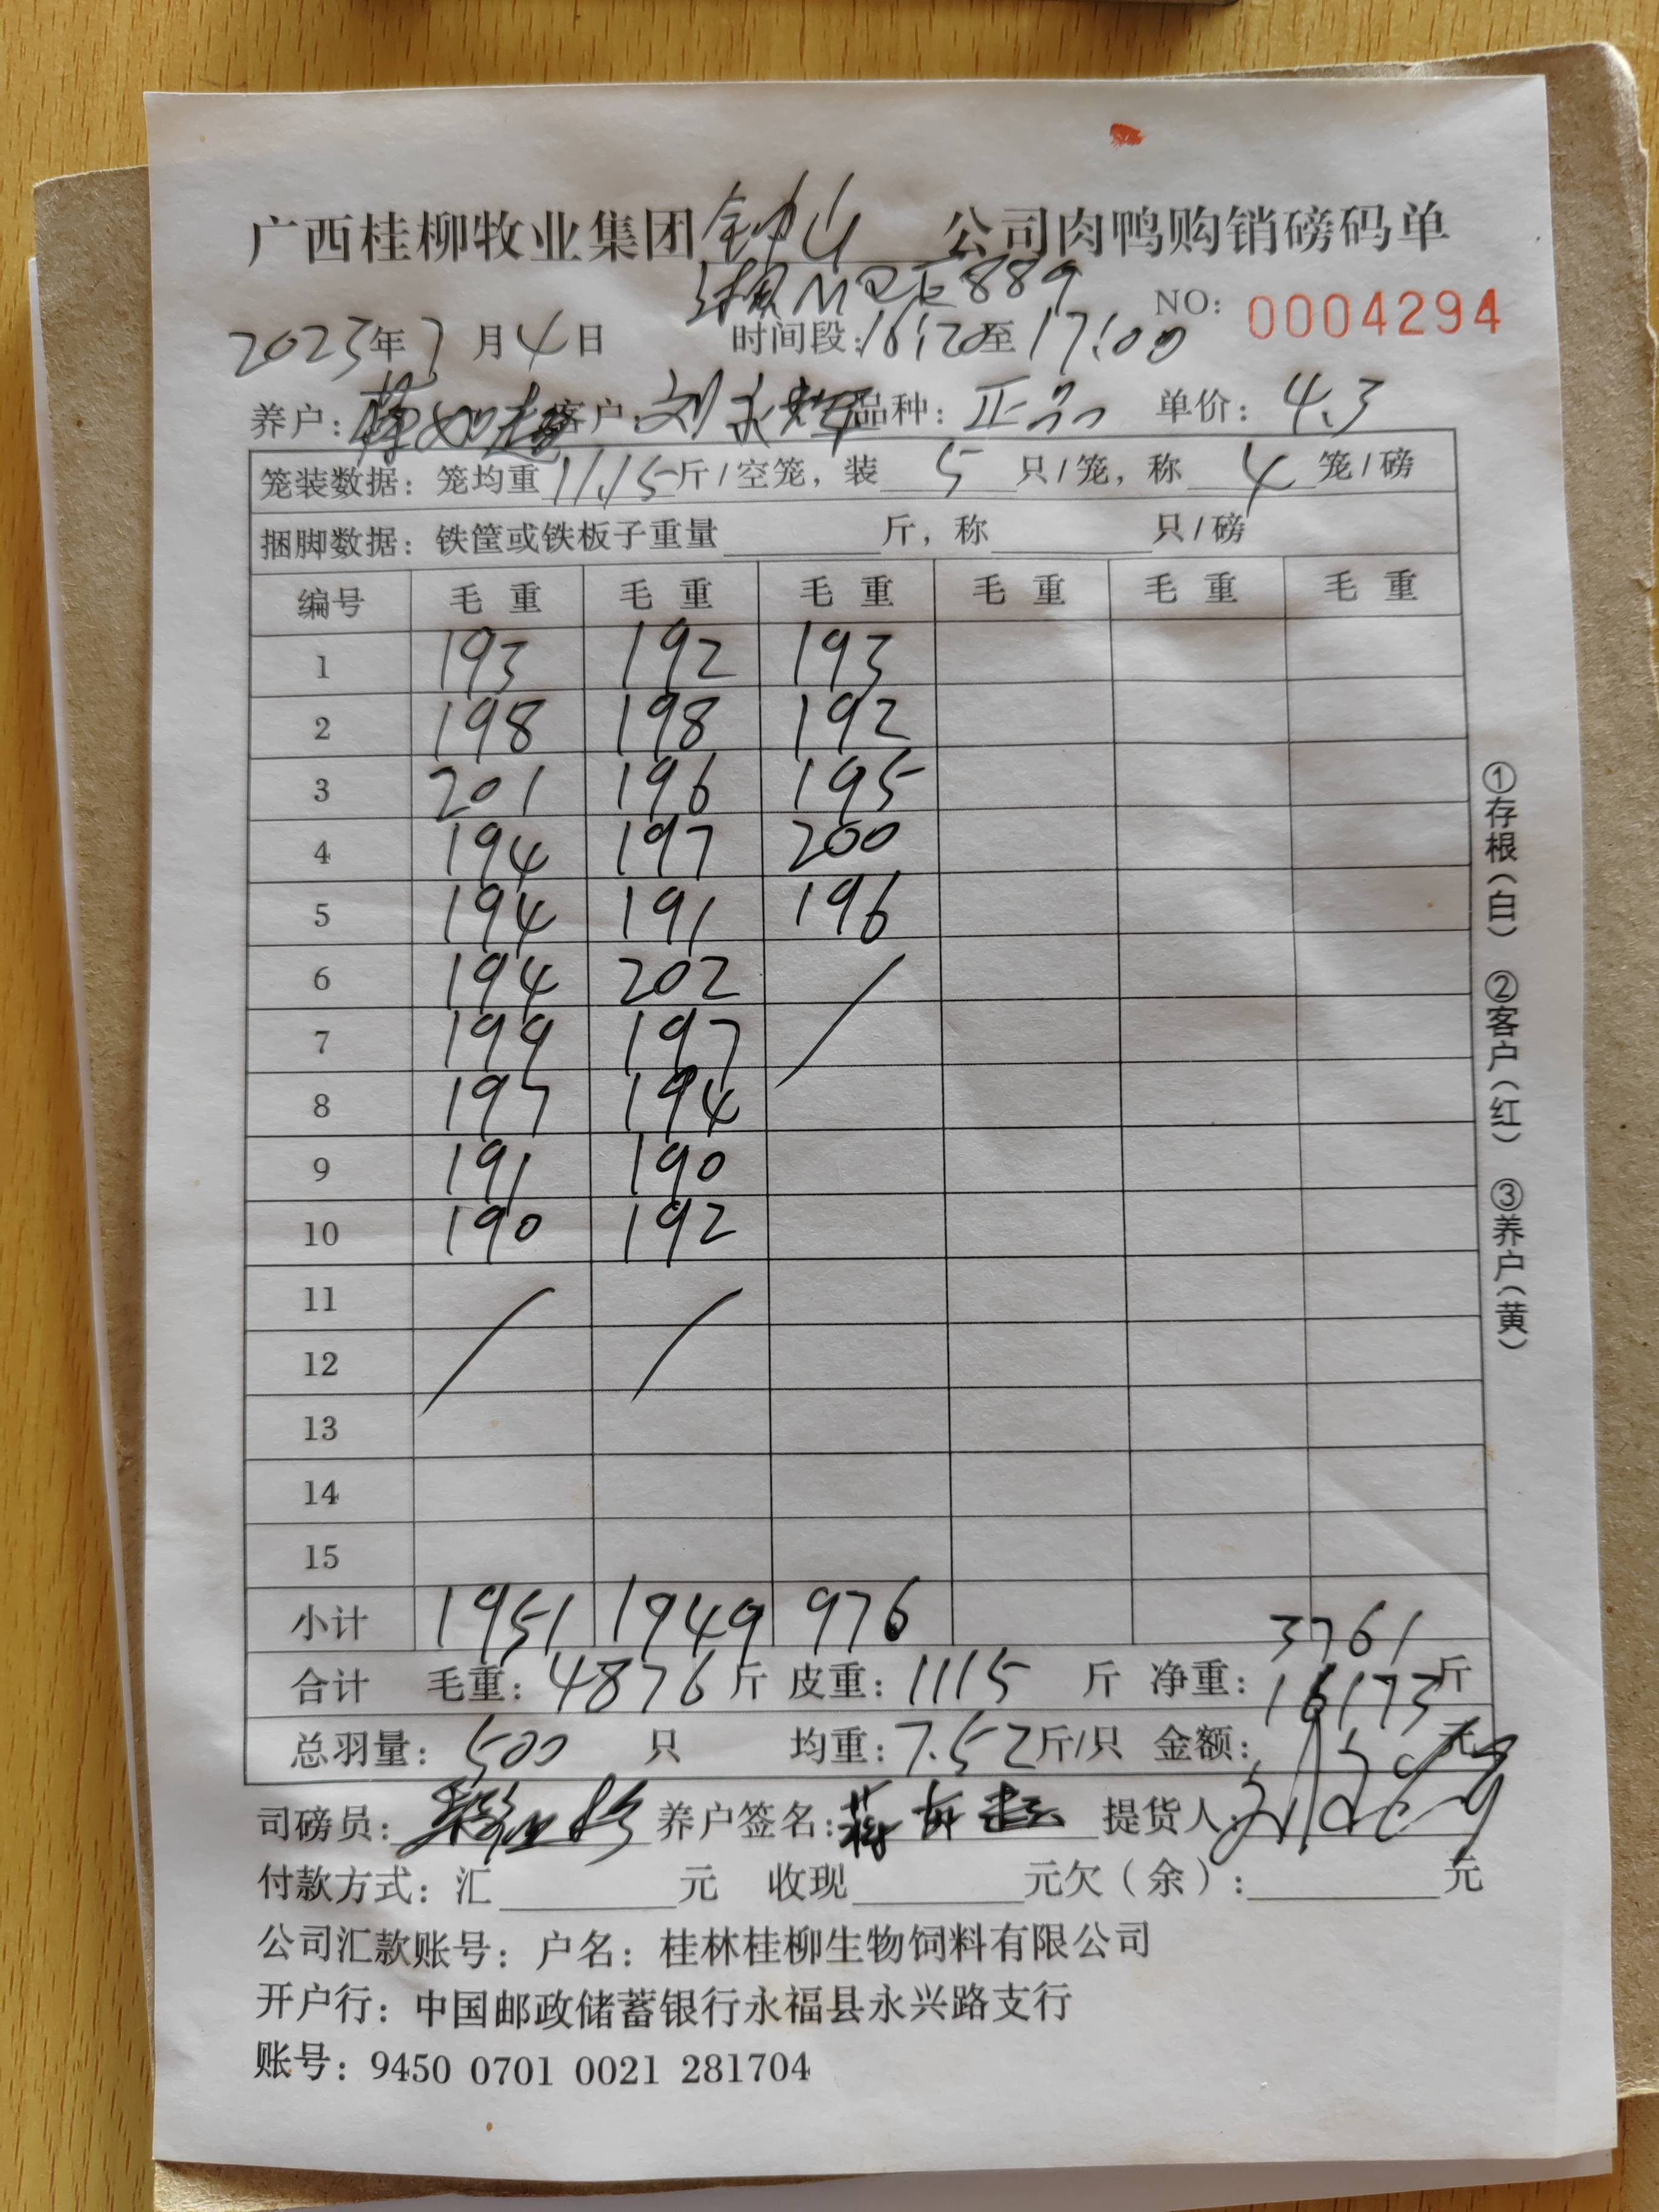 广西桂柳牧业集团钟山公司肉鸭购销磅码单
湘M 889
NO: 0004294
2023年7月4日 时间段:16:20至17:00
养户: 客户: 刘 品种: 正品 单价: 4.3
笼装数据: 笼均重11.15斤/空笼, 装5只/笼, 称4笼/磅
捆脚数据: 铁筐或铁板子重量 斤, 称 只/磅
编号 毛重 毛重 毛重 毛重 毛重 毛重
1 193 192 193
2 198 198 192
3 201 196 195
4 194 197 200
5 194 191 196
6 194 202
7 199 197
8 197 194
9 191 190
10 190 192
11
12
13
14
15
小计 1951 1949 976
合计 毛重: 4876斤 皮重: 1115斤 净重: 3761斤
总羽量: 500只 均重: 7.52斤/只 金额: 16173元
司磅员: 养户签名: 提货人:
付款方式: 汇 元 收现 元欠(余): 元
公司汇款账号: 户名: 桂林桂柳生物饲料有限公司
开户行: 中国邮政储蓄银行永福县永兴路支行
账号: 9450 0701 0021 281704
①存根(白) ②客户(红) ③养户(黄)